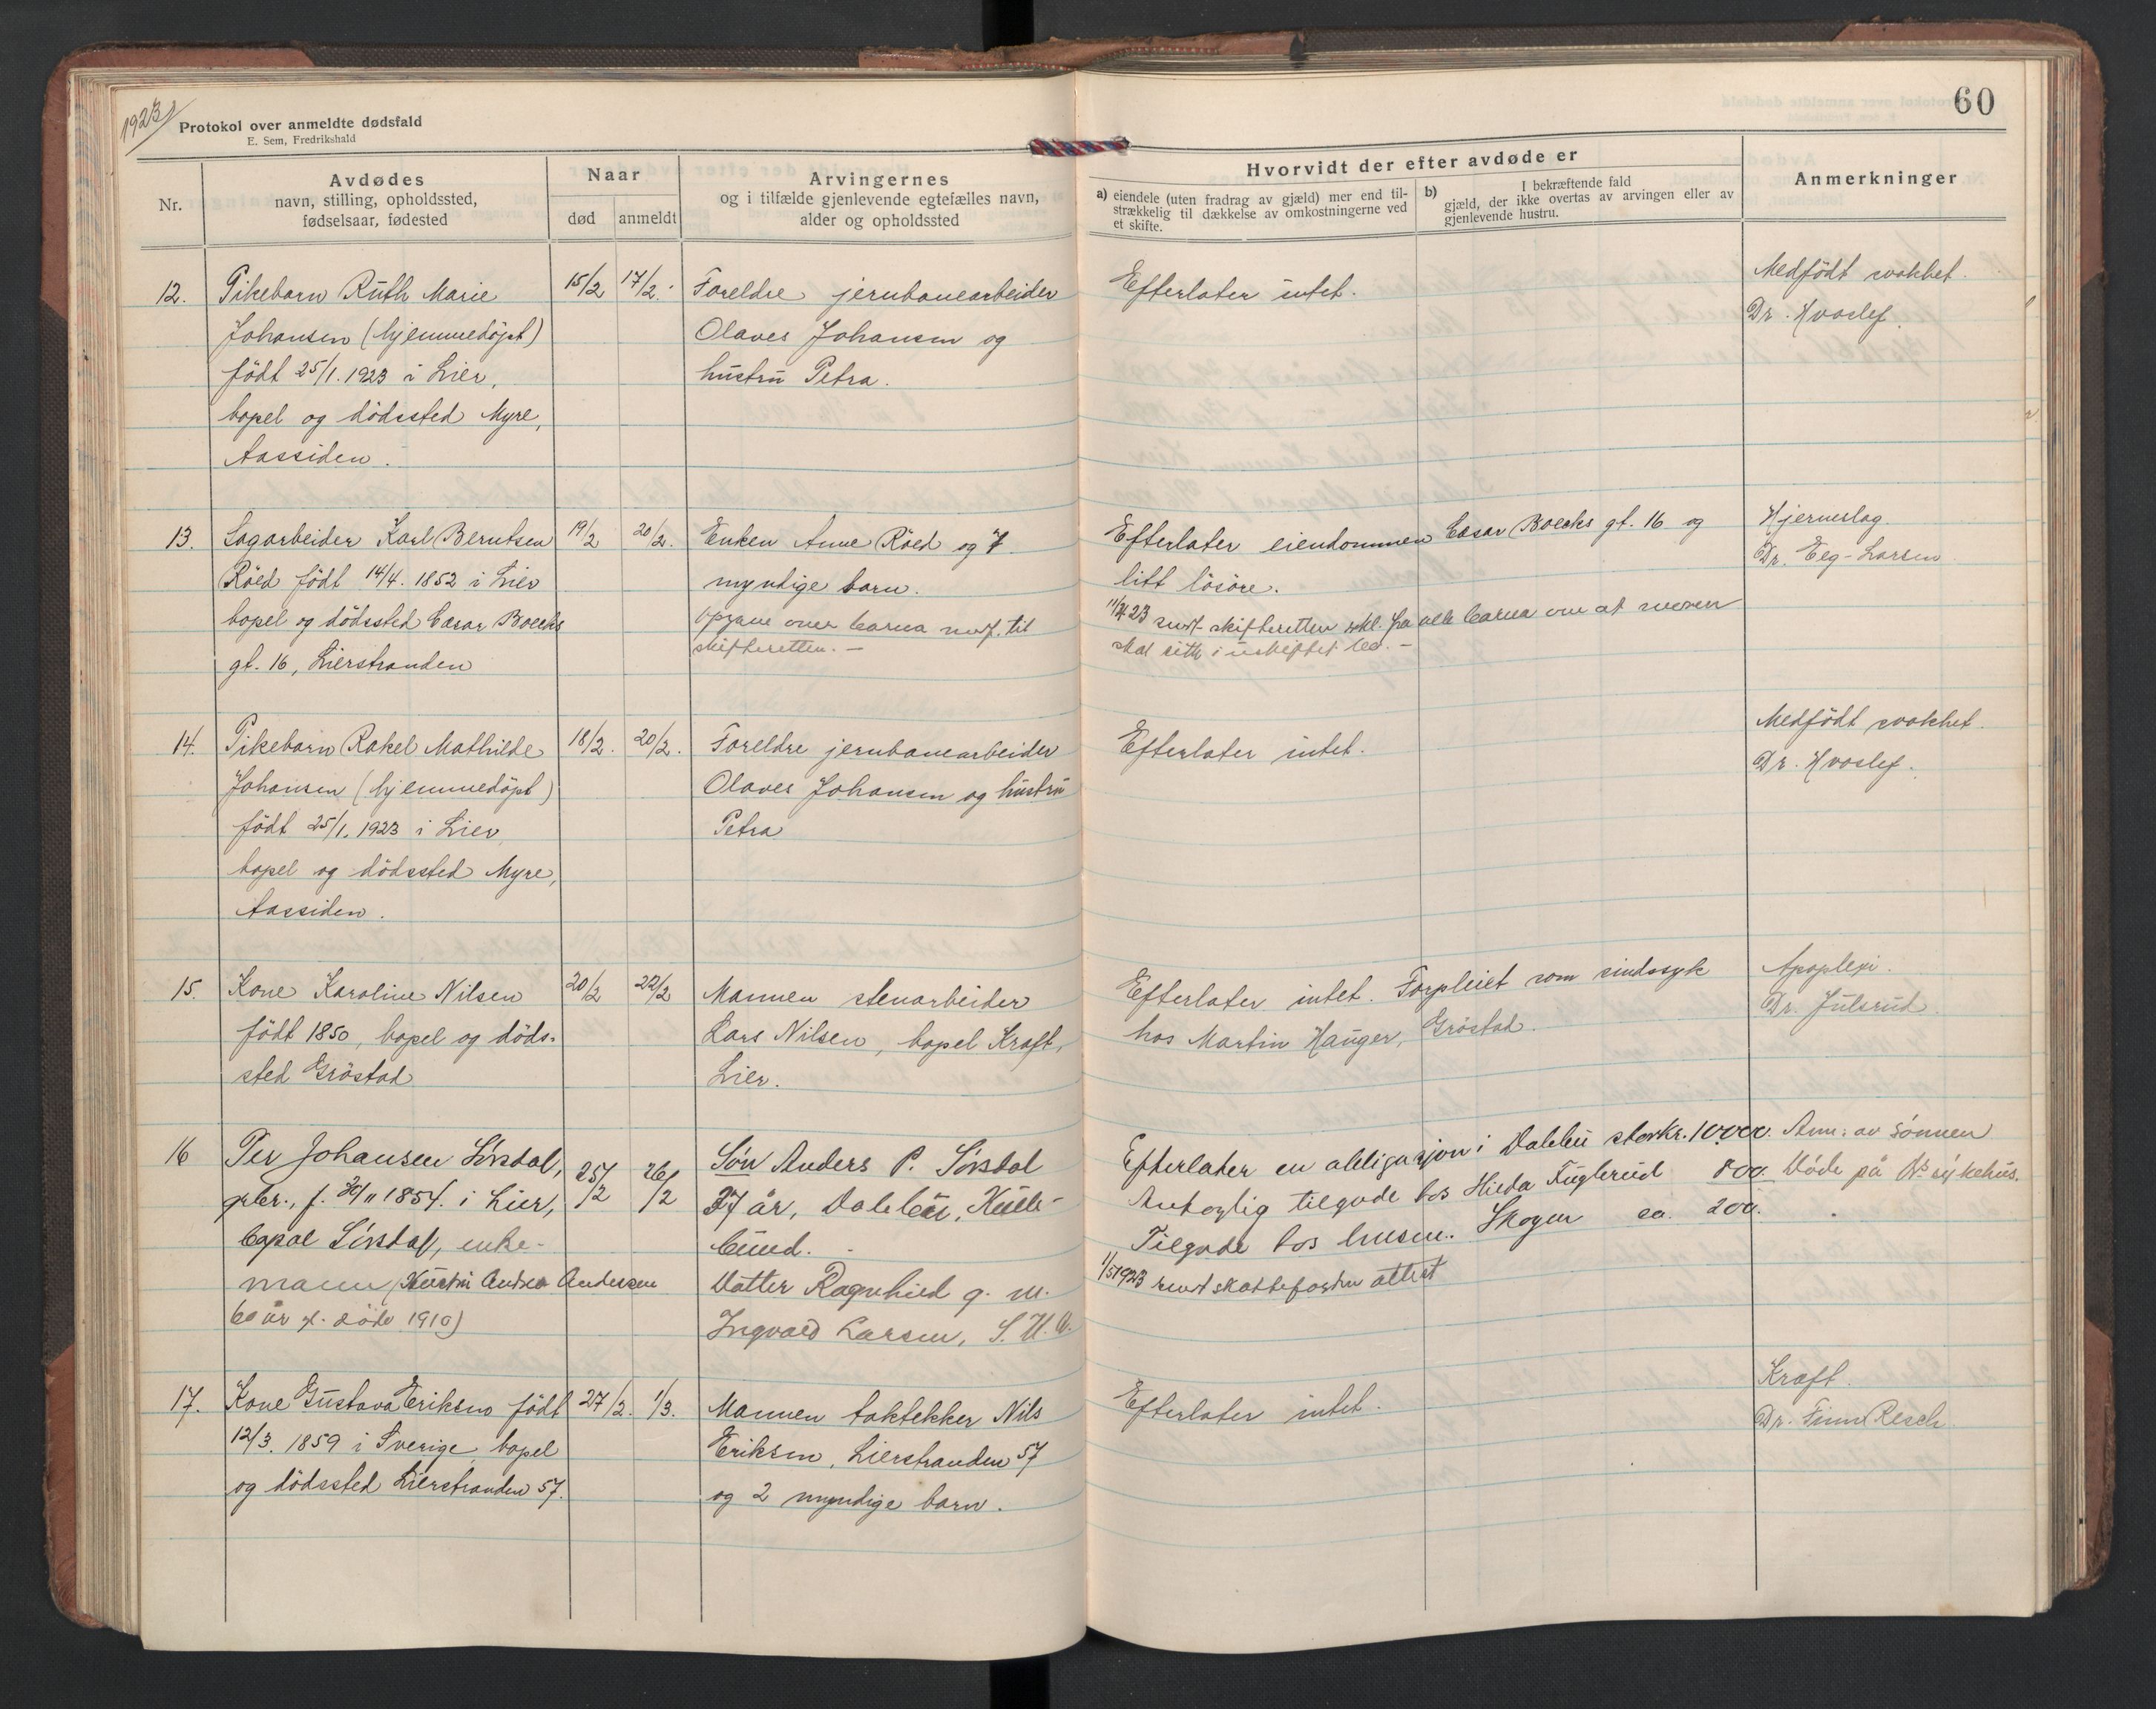 1923
Protokol over anmeldte dødsfald
E. Sem, Fredrikshald
60
Nr.
Avdødes
navn, stilling, opholdssted,
fødselsaar, fødested
Naar
død
anmeldt
Arvingernes
og i tilfælde gjenlevende egtefælles navn,
alder og opholdssted
Hvorvidt der efter avdøde er
a) eiendele (uten fradrag av gjæld) mer end til-
strækkelig til dækkelse av omkostningerne ved
et skifte.
b) I bekræftende fald
gjæld, der ikke overtas av arvingen eller av
gjenlevende hustru.
Anmerkninger
12.
Pikebarn Ruth Marie
Johansen (hjemmedöpt)
födt 25/1. 1923 i Lier,
bopel og dödssted Myre,
Aassiden.
15/2
17/2.
Foreldre jernbanearbeider
Olaves Johansen og
hustru Petra.
Efterlater intet.
Medfödt svakhet.
Dr. Hvoslef.
13.
Sagarbeider Karl Berntsen
Röed födt 14/4. 1852 i Lier
bopel og dödssted Cæsar Boecks
gt. 16, Lierstranden
19/2
20/2.
Enken Anne Röed og 7
myndige barn.
Opgave over barna til
skifteretten. —
Efterlater eiendommen Cæsar Boecks gt. 16 og
litt lösöre.
23 skifteretten erkl. fra alle barna om at moren
skal sitte i uskiftet bo. —
Hjerneslag
Dr. Eeg-Larsen
14.
Pikebarn Rakel Mathilde
Johansen (hjemmedöpt)
födt 25/1. 1923 i Lier,
bopel og dödssted Myre,
Aassiden.
18/2.
20/2.
Foreldre jernbanearbeider
Olaves Johansen og hustru
Petra
Efterlater intet.
Medfödt svakhet.
Dr. Hvoslef.
15.
Kone Karoline Nilsen
födt 1850, bopel og döds-
sted Gröstad
20/2
22/2
Mannen stenarbeider
Lars Nilsen, bopel Kraft,
Lier.
Efterlater intet. Forpleiet som sindssyk
hos Martin Hauger, Gröstad.
Apoplexi.
Dr. Julsrud.
16
Per Johansen Sörsdal,
f. 30/11 1854. i Lier,
bopæl Sörsdal, enke-
mann (Hustru Andrea Andersen
60 år döde 1910)
25/2
26/2
Sön Anders P. Sörsdal
37 år, Dalebu,
bund.
Datter Ragnhild g. m.
Ingvald Larsen, S. U. A.
Efterlater en obligasjon i Dalebu stor kr. 10000.
Antagelig tilgode hos Hilda Fuglerud 800.
Tilgode hos husm. Skogen ca. 200.
1/5 1923 skattefogden attest
Anm. av sönnen
Döde på Ds sykehus.
17.
Kone Gustava Eriksen födt
12/3. 1859 i Sverige, bopel
og dödssted Lierstranden 57.
27/2.
1/3.
Mannen taktekker Nils
Eriksen, Lierstranden 57
og 2 myndige barn.
Efterlater intet.
Kræft.
Dr. Finn Resch.